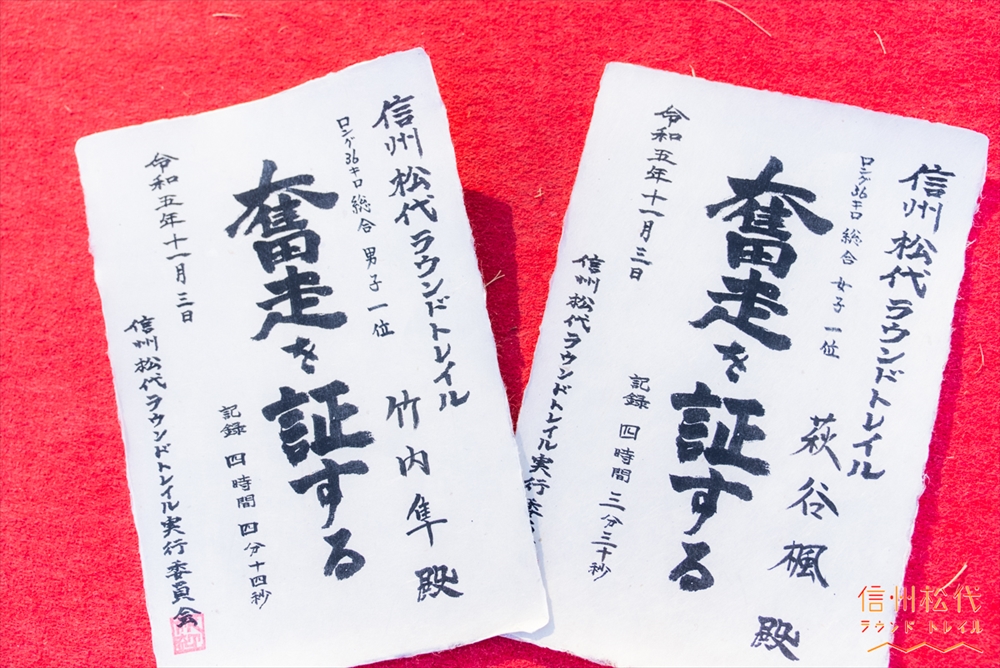 信州松代ラウンドトレイル
ロング36キロ総合 男子一位
竹内隼 殿
奮走を証する
記録 四時間四分十四秒
令和五年十一月三日
信州松代ラウンドトレイル実行委員会
信州松代ラウンドトレイル
ロング36キロ総合 女子一位
萩谷楓 殿
奮走を証する
記録 四時間三分三十秒
令和五年十一月三日
信州松代ラウンドトレイル実行委
信州松代
ラウンドトレイル